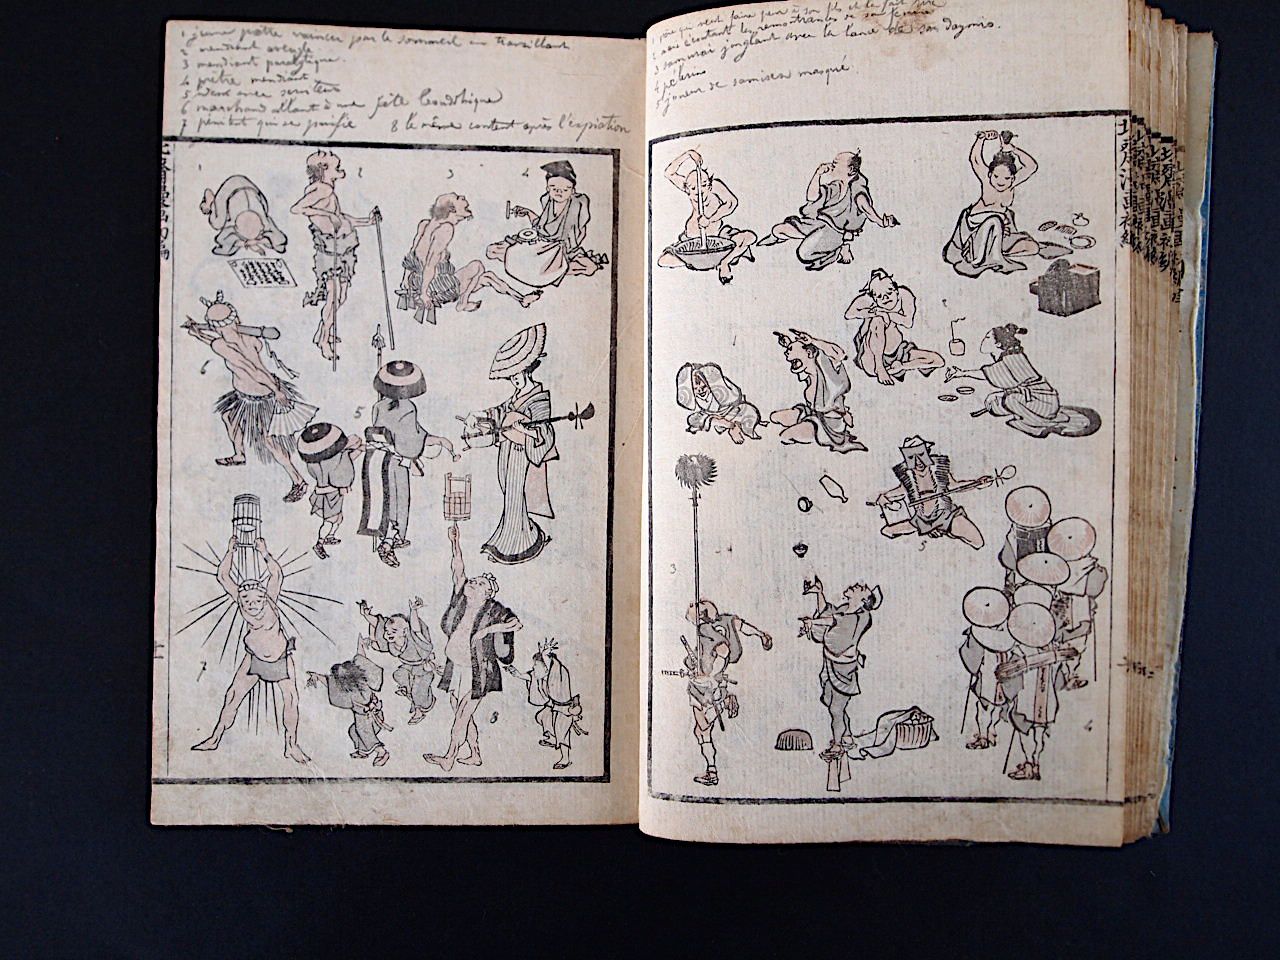 1 jeune prêtre vaincu par le sommeil en travaillant
2 mendiant aveugle
3 mendiant paralytique.
4 prêtre mendiant
5 avec serviteur
6 marchand allant à une fête bouddhique
7 pénitent qui se purifie 8 le même content après l'expiation
1 père qui veut faire peur à son fils et le fait rire
2 écoutant les remontrances de sa femme
3 samurai jonglant avec la lance de son daymio.
4 pélerins
5 joueur de samisen masqué.
1
2
3
4
6
5
7
8
1
2
3
5
4
北斎漫画初編
十一
北斎漫画初編